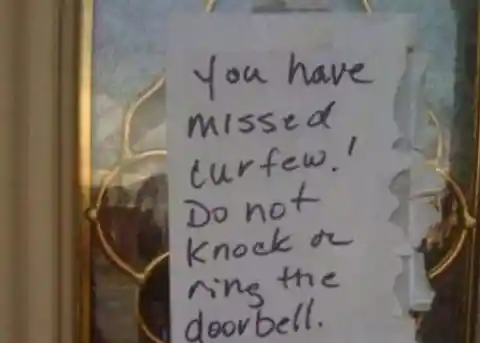 You have
missed
curfew.!
Do not
knock or
ring the
doorbell.